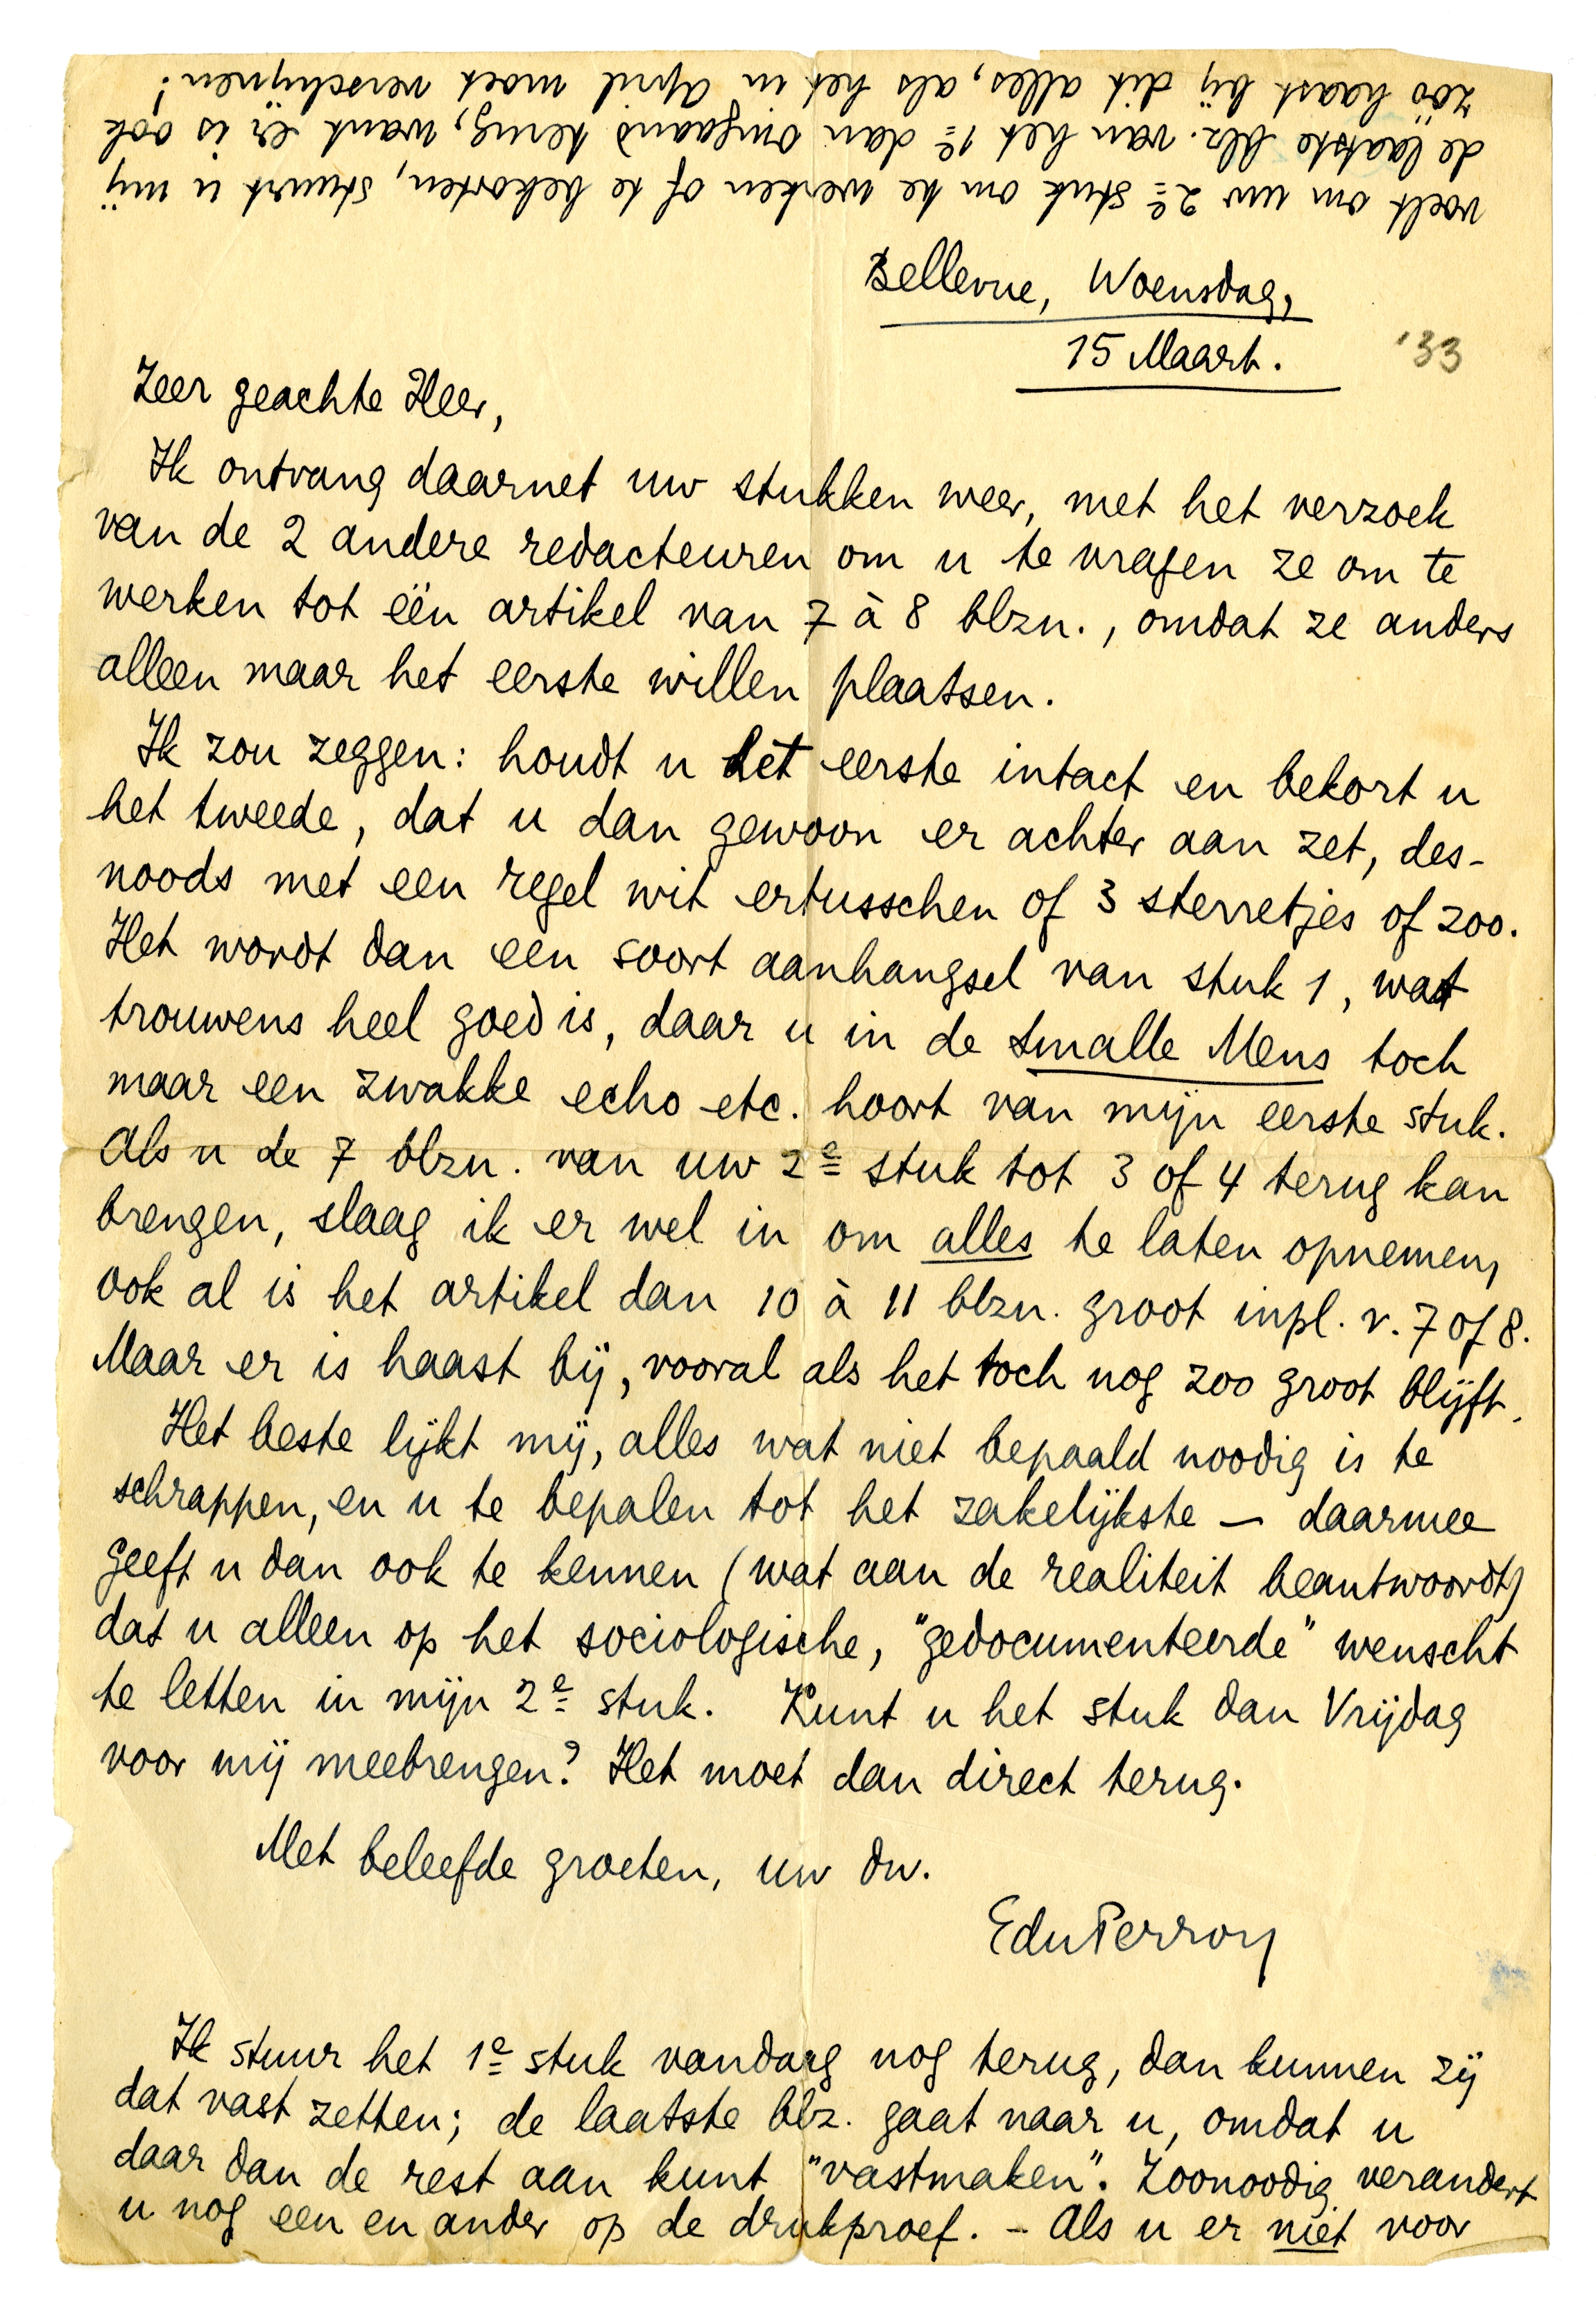 Bellevue, Woensdag,
15 Maart. '33
Zeer geachte Heer,
Ik ontvang daarnet uw stukken weer, met het verzoek
van de 2 andere redacteuren om u te vragen ze om te
werken tot één artikel van 7 à 8 blzn., omdat ze anders
alleen maar het eerste willen plaatsen.
Ik zou zeggen: houdt u het eerste intact en bekort u
het tweede, dat u dan gewoon er achter aan zet, des-
noods met een regel wit ertusschen of 3 sterretjes of zoo.
Het wordt dan een soort aanhangsel van stuk 1, wat
trouwens heel goed is, daar u in de Smalle Mens toch
maar een zwakke echo etc. hoort van mijn eerste stuk.
Als u de 7 blzn. van uw 2e stuk tot 3 of 4 terug kan
brengen, slaag ik er wel in om alles te laten opnemen,
ook al is het artikel dan 10 à 11 blzn. groot inpl. v. 7 of 8.
Maar er is haast bij, vooral als het toch nog zoo groot blijft.
Het beste lijkt mij, alles wat niet bepaald noodig is te
schrappen, en u te bepalen tot het zakelijkste — daarmee
geeft u dan ook te kennen (wat aan de realiteit beantwoordt)
dat u alleen op het sociologische, "gedocumenteerde" wenscht
te letten in mijn 2e stuk. Kunt u het stuk dan Vrijdag
voor mij meebrengen? Het moet dan direct terug.
Met beleefde groeten, uw dw.
EduPerron
Ik stuur het 1e stuk vandaag nog terug, dan kunnen zij
dat vast zetten; de laatste blz. gaat naar u, omdat u
daar dan de rest aan kunt "vastmaken". Zoonoodig verandert
u nog een en ander op de drukproef. – Als u er niet voor
voelt om uw 2e stuk om te werken of te bekorten, stuurt u mij
de laatste blz. van het 1e dan omgaand terug, want er is ook
zóó haast bij dit alles, als het in April moet verschijnen!